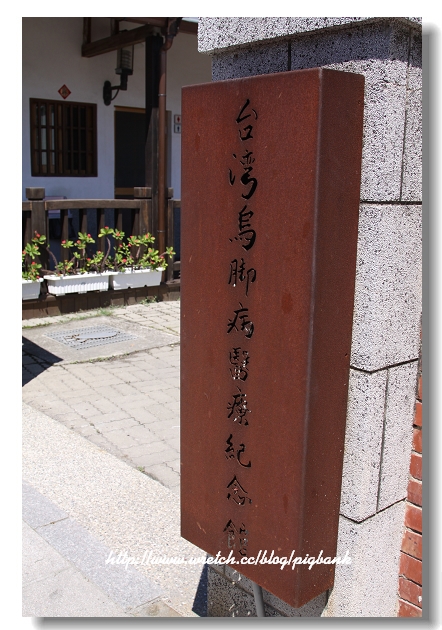 台湾烏脚病醫療紀念館
http://www.wretch.cc/blog/pigbank